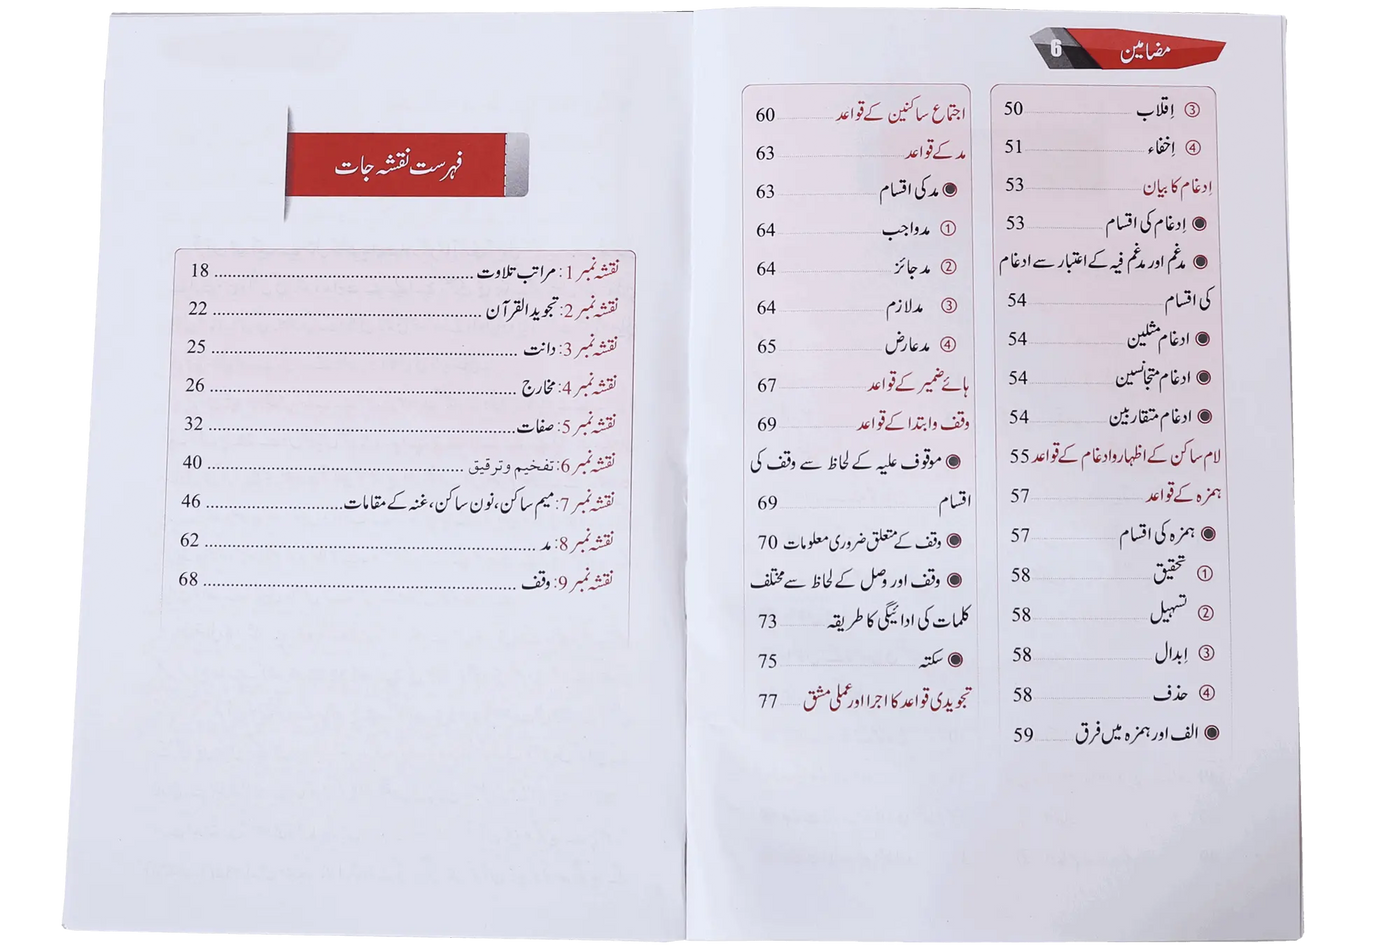 مضامین 6
③ اِقلاب 50
④ اِخفاء 51
اِدغام کا بیان 53
● اِدغام کی اقسام 53
● مدغم اور مدغم فیہ کے اعتبار سے ادغام
کی اقسام 54
● ادغام مثلین 54
● ادغام متجانسین 54
● ادغام متقاربین 54
لام ساکن کے اظہار و ادغام کے قواعد 55
ہمزہ کے قواعد 57
● ہمزہ کی اقسام 57
① تحقیق 58
② تسہیل 58
③ اِبدال 58
④ حذف 58
● الف اور ہمزہ میں فرق 59
اجتماع ساکنین کے قواعد 60
مد کے قواعد 63
● مد کی اقسام 63
① مد واجب 64
② مد جائز 64
③ مد لازم 64
④ مد عارض 65
ہائے ضمیر کے قواعد 67
وقف و ابتدا کے قواعد 69
● موقوف علیہ کے لحاظ سے وقف کی
اقسام 69
● وقف کے متعلق ضروری معلومات 70
● وقف اور وصل کے لحاظ سے مختلف
کلمات کی ادائیگی کا طریقہ 73
● سکتہ 75
تجویدی قواعد کا اجرا اور عملی مشق 77
فہرست نقشہ جات
نقشہ نمبر 1: مراتب تلاوت 18
نقشہ نمبر 2: تجوید القرآن 22
نقشہ نمبر 3: دانت 25
نقشہ نمبر 4: مخارج 26
نقشہ نمبر 5: صفات 32
نقشہ نمبر 6: تفخیم و ترقیق 40
نقشہ نمبر 7: میم ساکن، نون ساکن، غنہ کے مقامات 46
نقشہ نمبر 8: مد 62
نقشہ نمبر 9: وقف 68